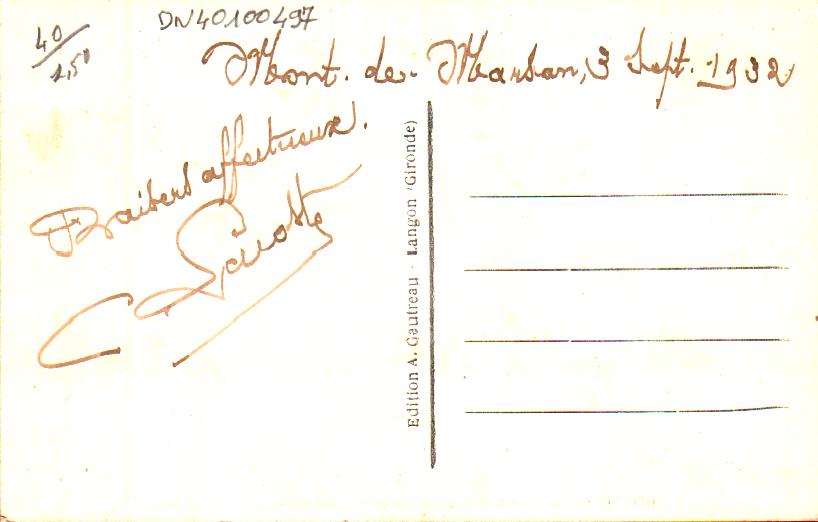 DN40100497
40
1,50
Mont-de-Marsan, 3 Sept. 1932
Baisers affectueux.
Edition A. Gautreau - Langon (Gironde)